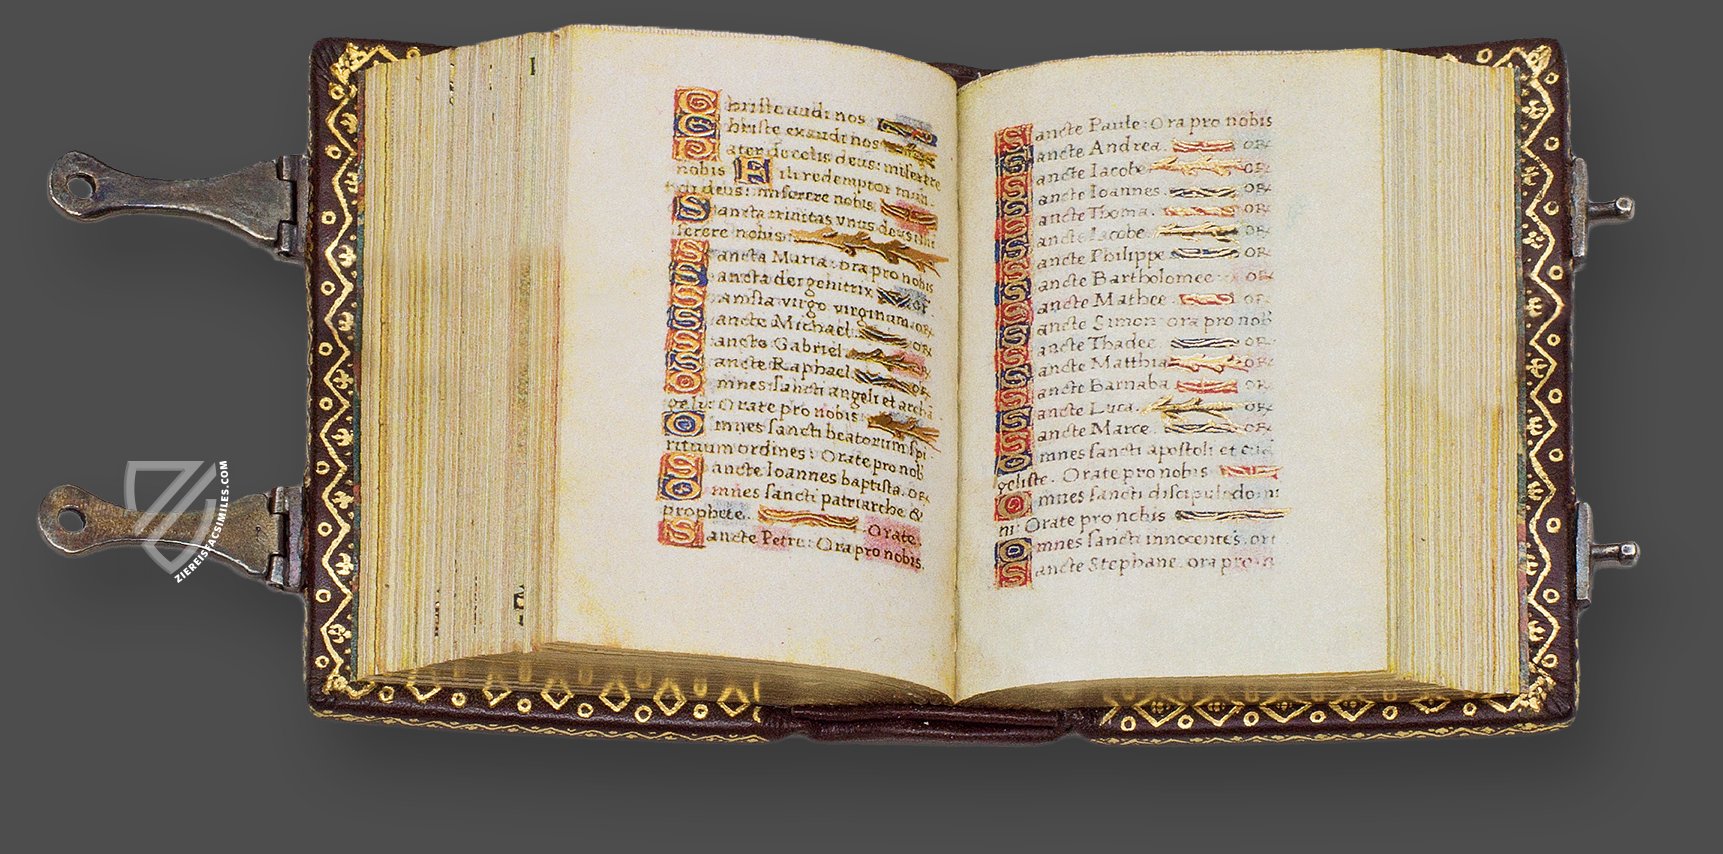 Christe audi nos
Christe exaudi nos
Pater de celis deus: miserere
nobis Fili redemptor mun
di deus: miserere nobis
Sancta trinitas vnus deus mi
serere nobis
Sancta Maria: ora pro nobis
Sancta dei genitrix or
Sancta virgo virginum. or
Sancte Michael or
Sancte Gabriel or
Sancte Raphael or
Omnes sancti angeli et archa
geli: Orate pro nobis
Omnes sancti beatorum spi
rituum ordines: Orate pro nob
Sancte Ioannes baptista. or
Omnes sancti patriarche &
prophete. Orate.
Sancte Petre: Ora pro nobis.
Sancte Paule: Ora pro nobis
Sancte Andrea. or
Sancte Iacobe or
Sancte Ioannes. or
Sancte Thoma. or
Sancte Iacobe or
Sancte Philippe or
Sancte Bartholomee or
Sancte Mathee or
Sancte Simon: ora pro nob
Sancte Thadee or
Sancte Matthia or
Sancte Barnaba or
Sancte Luca. or
Sancte Marce. or
Omnes sancti apostoli et eua
geliste. Orate pro nobis
Omnes sancti discipuli domi
ni: Orate pro nobis
Omnes sancti innocentes. ora
Sancte Stephane. ora pro n
ZIEREIS FACSIMILES.COM